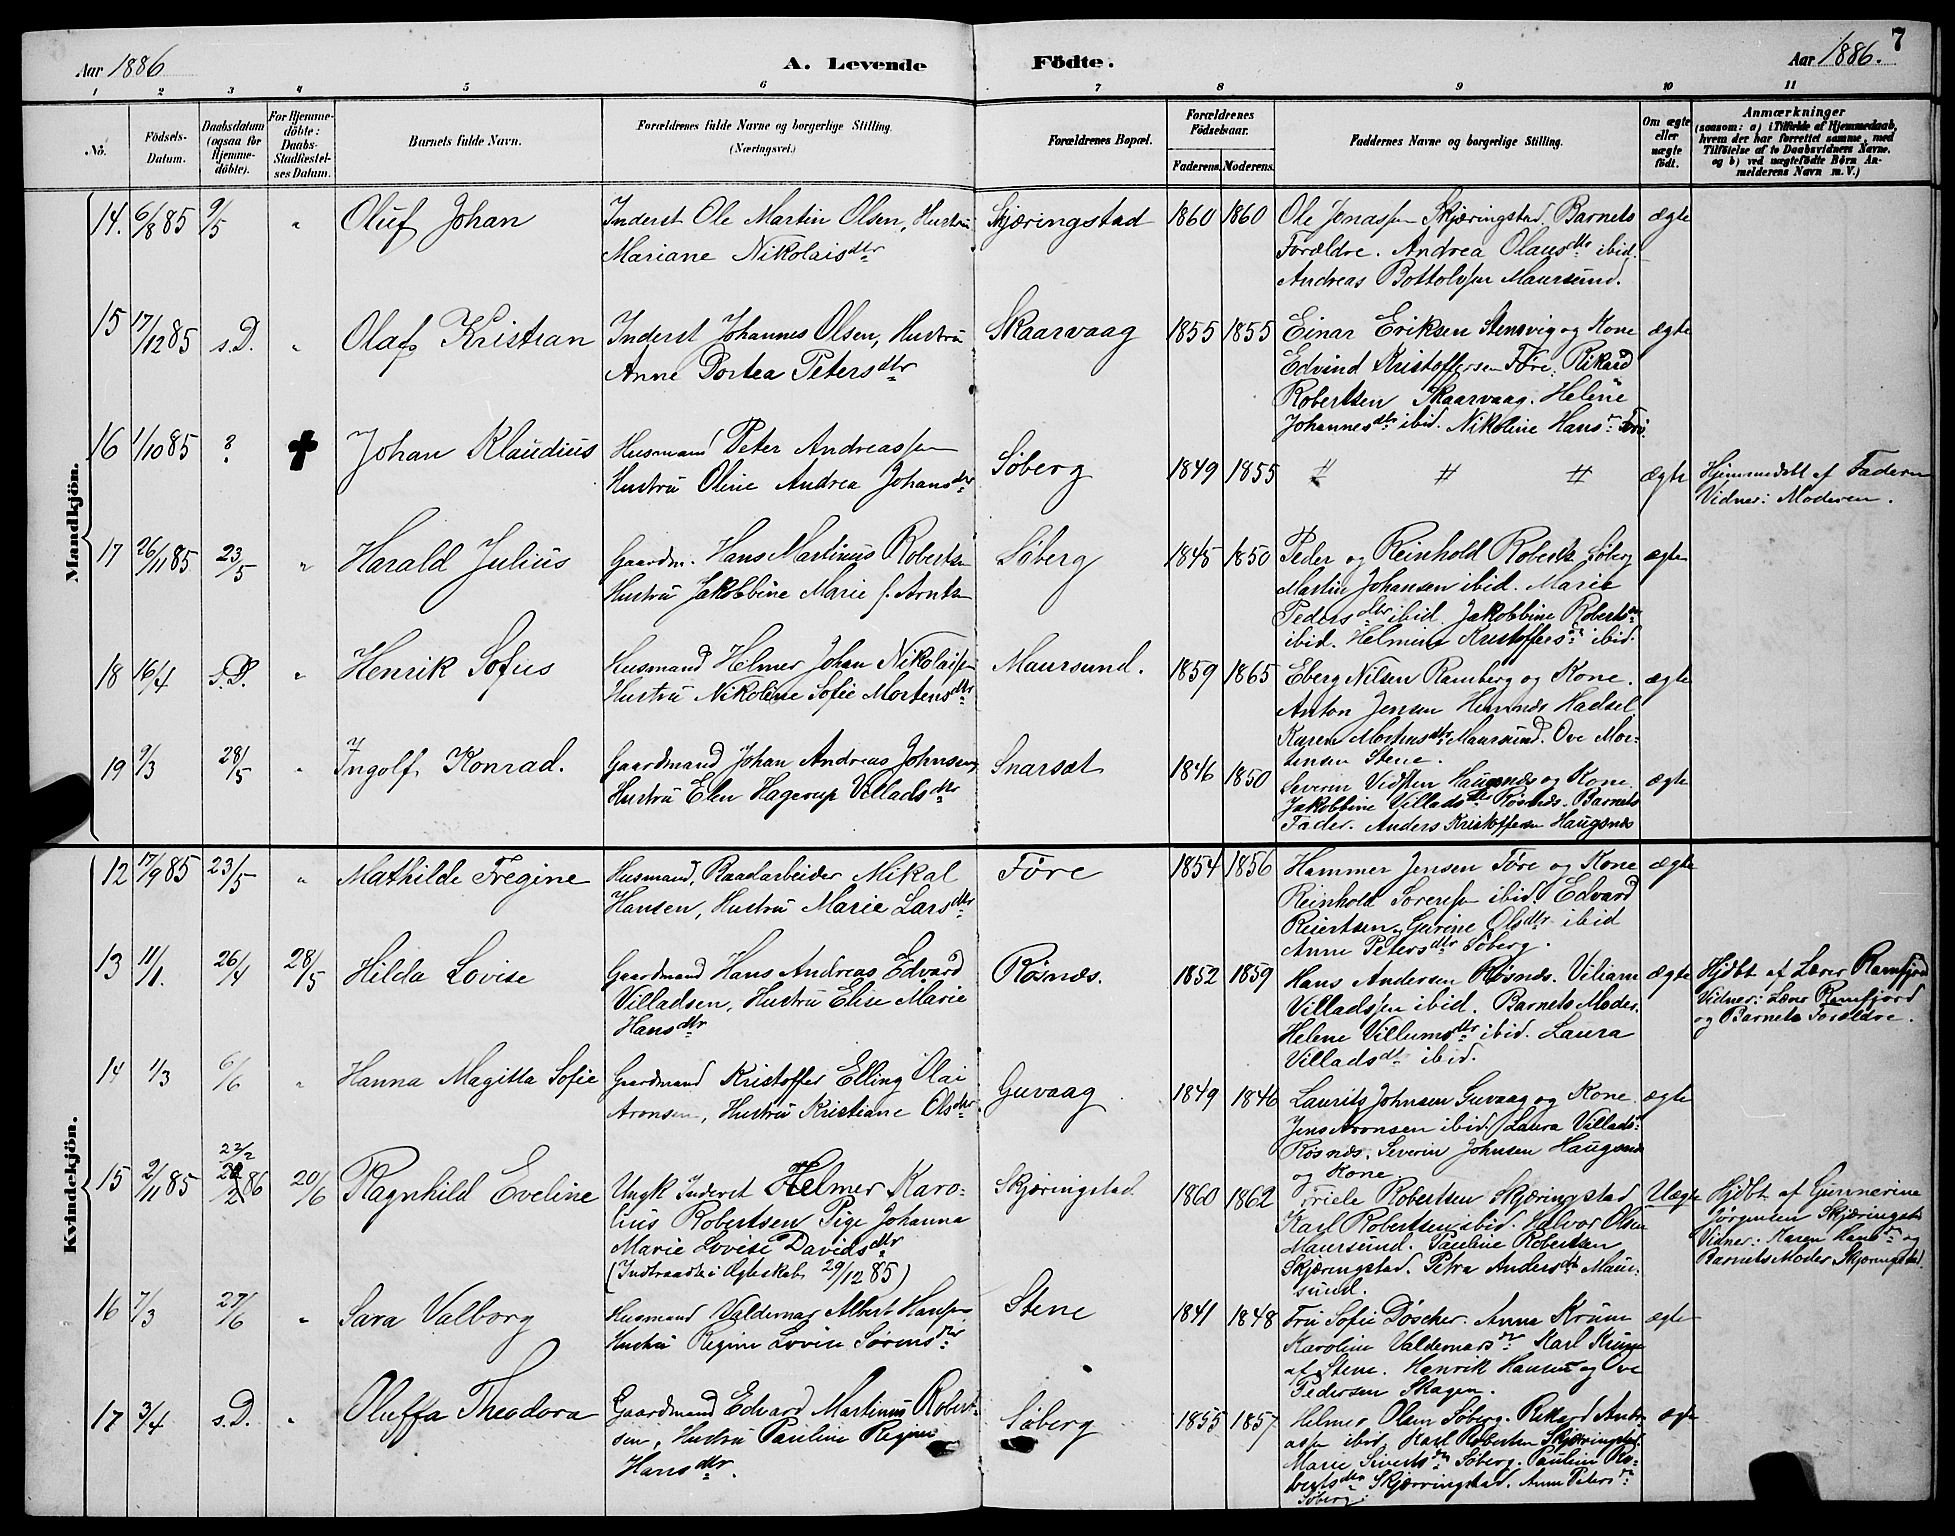 7
Aar 1886
A. Levende Födte.
Aar 1886.
1 2 3 4 5 6 7 8 9 10 11
No.
Födsels-Datum.
Daabsdatum (ogsaa for Hjemme-döbte).
For Hjemme-döbte: Daabs-Stadfæstel-ses Datum.
Barnets fulde Navn.
Forældrenes fulde Navne og borgerlige Stilling. (Næringsvei.)
Forældrenes Bopæl.
Forældrenes Födselsaar.
Faderens. Moderens.
Faddernes Navne og borgerlige Stilling.
Om ægte eller uægte födt.
Anmærkninger
(saasom: a) i Tilfælde af Hjemmedaab, hvem der har forrettet samme, med Tilföielse af to Daabsvidners Navne. og b) ved uægtefödte Börn Anmelderens Navn m. V.)
Mandkjön.
14. 6/8 85 9/5 " Oluf Johan
Inderst Ole Martin Olsen, Hustru
Mariane Nikolaisdtr
Skjæringstad 1860 1860
Ole Jonassen Skjæringstad. Barnets
Forældre. Andrea Olausdtr ibid.
Andreas Bottolvsen Maursund.
ægte
15 17/12 85 s.D. " Olaf Kristian
Inderst Johannes Olsen, Hustru
Anne Dortea Petersdtr
Skaarvaag 1855 1855
Einar Eriksen Stensvig og Kone
Edvind Kristoffersen Føre. Rikard
Robertsen Skaarvaag. Heline
Johannesdtr ibid. Nikoline Hansdr Føre.
ægte
16 1/10 85 ? ✝ Johan Klaudius
Husmand Peter Andreassen
Hustru Oline Andrea Johansdtr
Søberg 1849 1855 # # # ægte
Hjemmedøbt af Faderen
Vidner: Moderen.
17 26/11 85 23/5 " Harald Julius
Gaardm. Hans Martinus Roberts.
Hustru Jakobbine Marie f. Arnts.
Søberg 1845 1850
Peder og Reinhold Roberts. Søberg
Martin Johansen ibid. Marie
Pedersdtr ibid. Jakobbine Robertsdr
ibid. Helmine Kristoffersdr ibid.
ægte
18 16/4 s.D. " Henrik Sofus
Husmand Helmer Johan Nikolaisen
Hustru Nikoline Sofie Mortensdtr
Maursund. 1859 1865
Eberg Nilsen Ramberg og Kone.
Anton Jensen Hennes Hadsel
Karen Mortensdtr Maursund. Ove Mor-
tensen Stene.
ægte
19 9/3 28/5 " Ingolf Konrad.
Gaardmand Johan Andreas Johnsen,
Hustru Elen Hagerup Villadsdtr
Snarsæt 1846 1850
Severin Haugsnes og Kone
Jakobbine Villadsdtr Røsnes. Barnets
Fader. Anders Kristoffersen Haugsnes
ægte
Kvindekjön.
12 17/9 85 23/5 " Mathilde Fregine
Husmand, Raadarbeider Mikal
Hansen, Hustru Marie Larsdtr
Føre 1854 1856
Hammer Jensen Føre og Kone
Reinhold Sørensen ibid. Edvard
Reiertsen. Gurine Olsdtr ibid
Anne Petersdtr Søberg.
ægte
13 11/1. 26/4 28/5 Hilda Lovise
Gaardmand Hans Andreas Edvard
Villadsen, Hustru Elise Marie
Hansdtr
Røsnæs. 1852 1859
Hans Andersen Røsnæs. Viliam
Villadsen ibid. Barnets Moder.
Helene Villumsdtr ibid. Laura
Villadsdtr ibid.
ægte
Hjdbt af Lærer Ramfjord
Vidner: Lærer Ramfjord
og Barnets Forældre.
14 1/3 6/6 " Hanna Magitta Sofie
Gaardmand Kristoffer Elling Olai
Aronsen, Hustru Kristiane Olsdtr
Guvaag. 1849 1846
Laurits Johnsen Guvaag og Kone.
Jens Aronsen ibid. Laura Villads.
Røsnæs. Severin Johnsen Haugsnes
og Kone
ægte
15 2/11 85 22/2 86 20/6 Ragnhild Eveline
Ungk. Inderst Helmer Karo-
lius Robertsen Pige Johanna
Marie Lovise Davidsdtr
(Indtraadte i Ægteskab 29/12 85)
Skjæringstad 1860 1862
Friele Robertsen Skjæringstad
Karl Robertsen ibid. Halvor Olsen
Maursund. Pauline Robertsen
Skjæringstad. Petra Andersdtr Maur-
sund.
Uægte
Hjdbt af Gunnerine
Jørgensen Skjæringst.
Vidner: Karen Hansdr og
Barnets Moder Skjæringstad.
16 7/3 27/6 " Sara Valborg
Husmand Valdemar Albert Hansen
Hustru Regine Lovise Sørensdtr
Stene 1841 1848
Fru Sofie Døscher. Anna Krum
Karoline Valdemarsdr Karl Krum
af Stene. Henrik Hansen og Ove
Pedersen Skagen.
ægte
17 3/4 s.D. " Oluffa Theodora
Gaardmand Edvard Martinus Robert-
sen, Hustru Pauline Regine
Hansdtr.
Søberg 1855 1857
Helmer Olsen Søberg. Rikard Andre-
assen ibid. Karl Robertsen Skjæringstad.
Marie Sivertsdtr Søberg. Pauline Ro-
bertsdtr Skjæringstad. Anne Petersdr
Søberg.
ægte